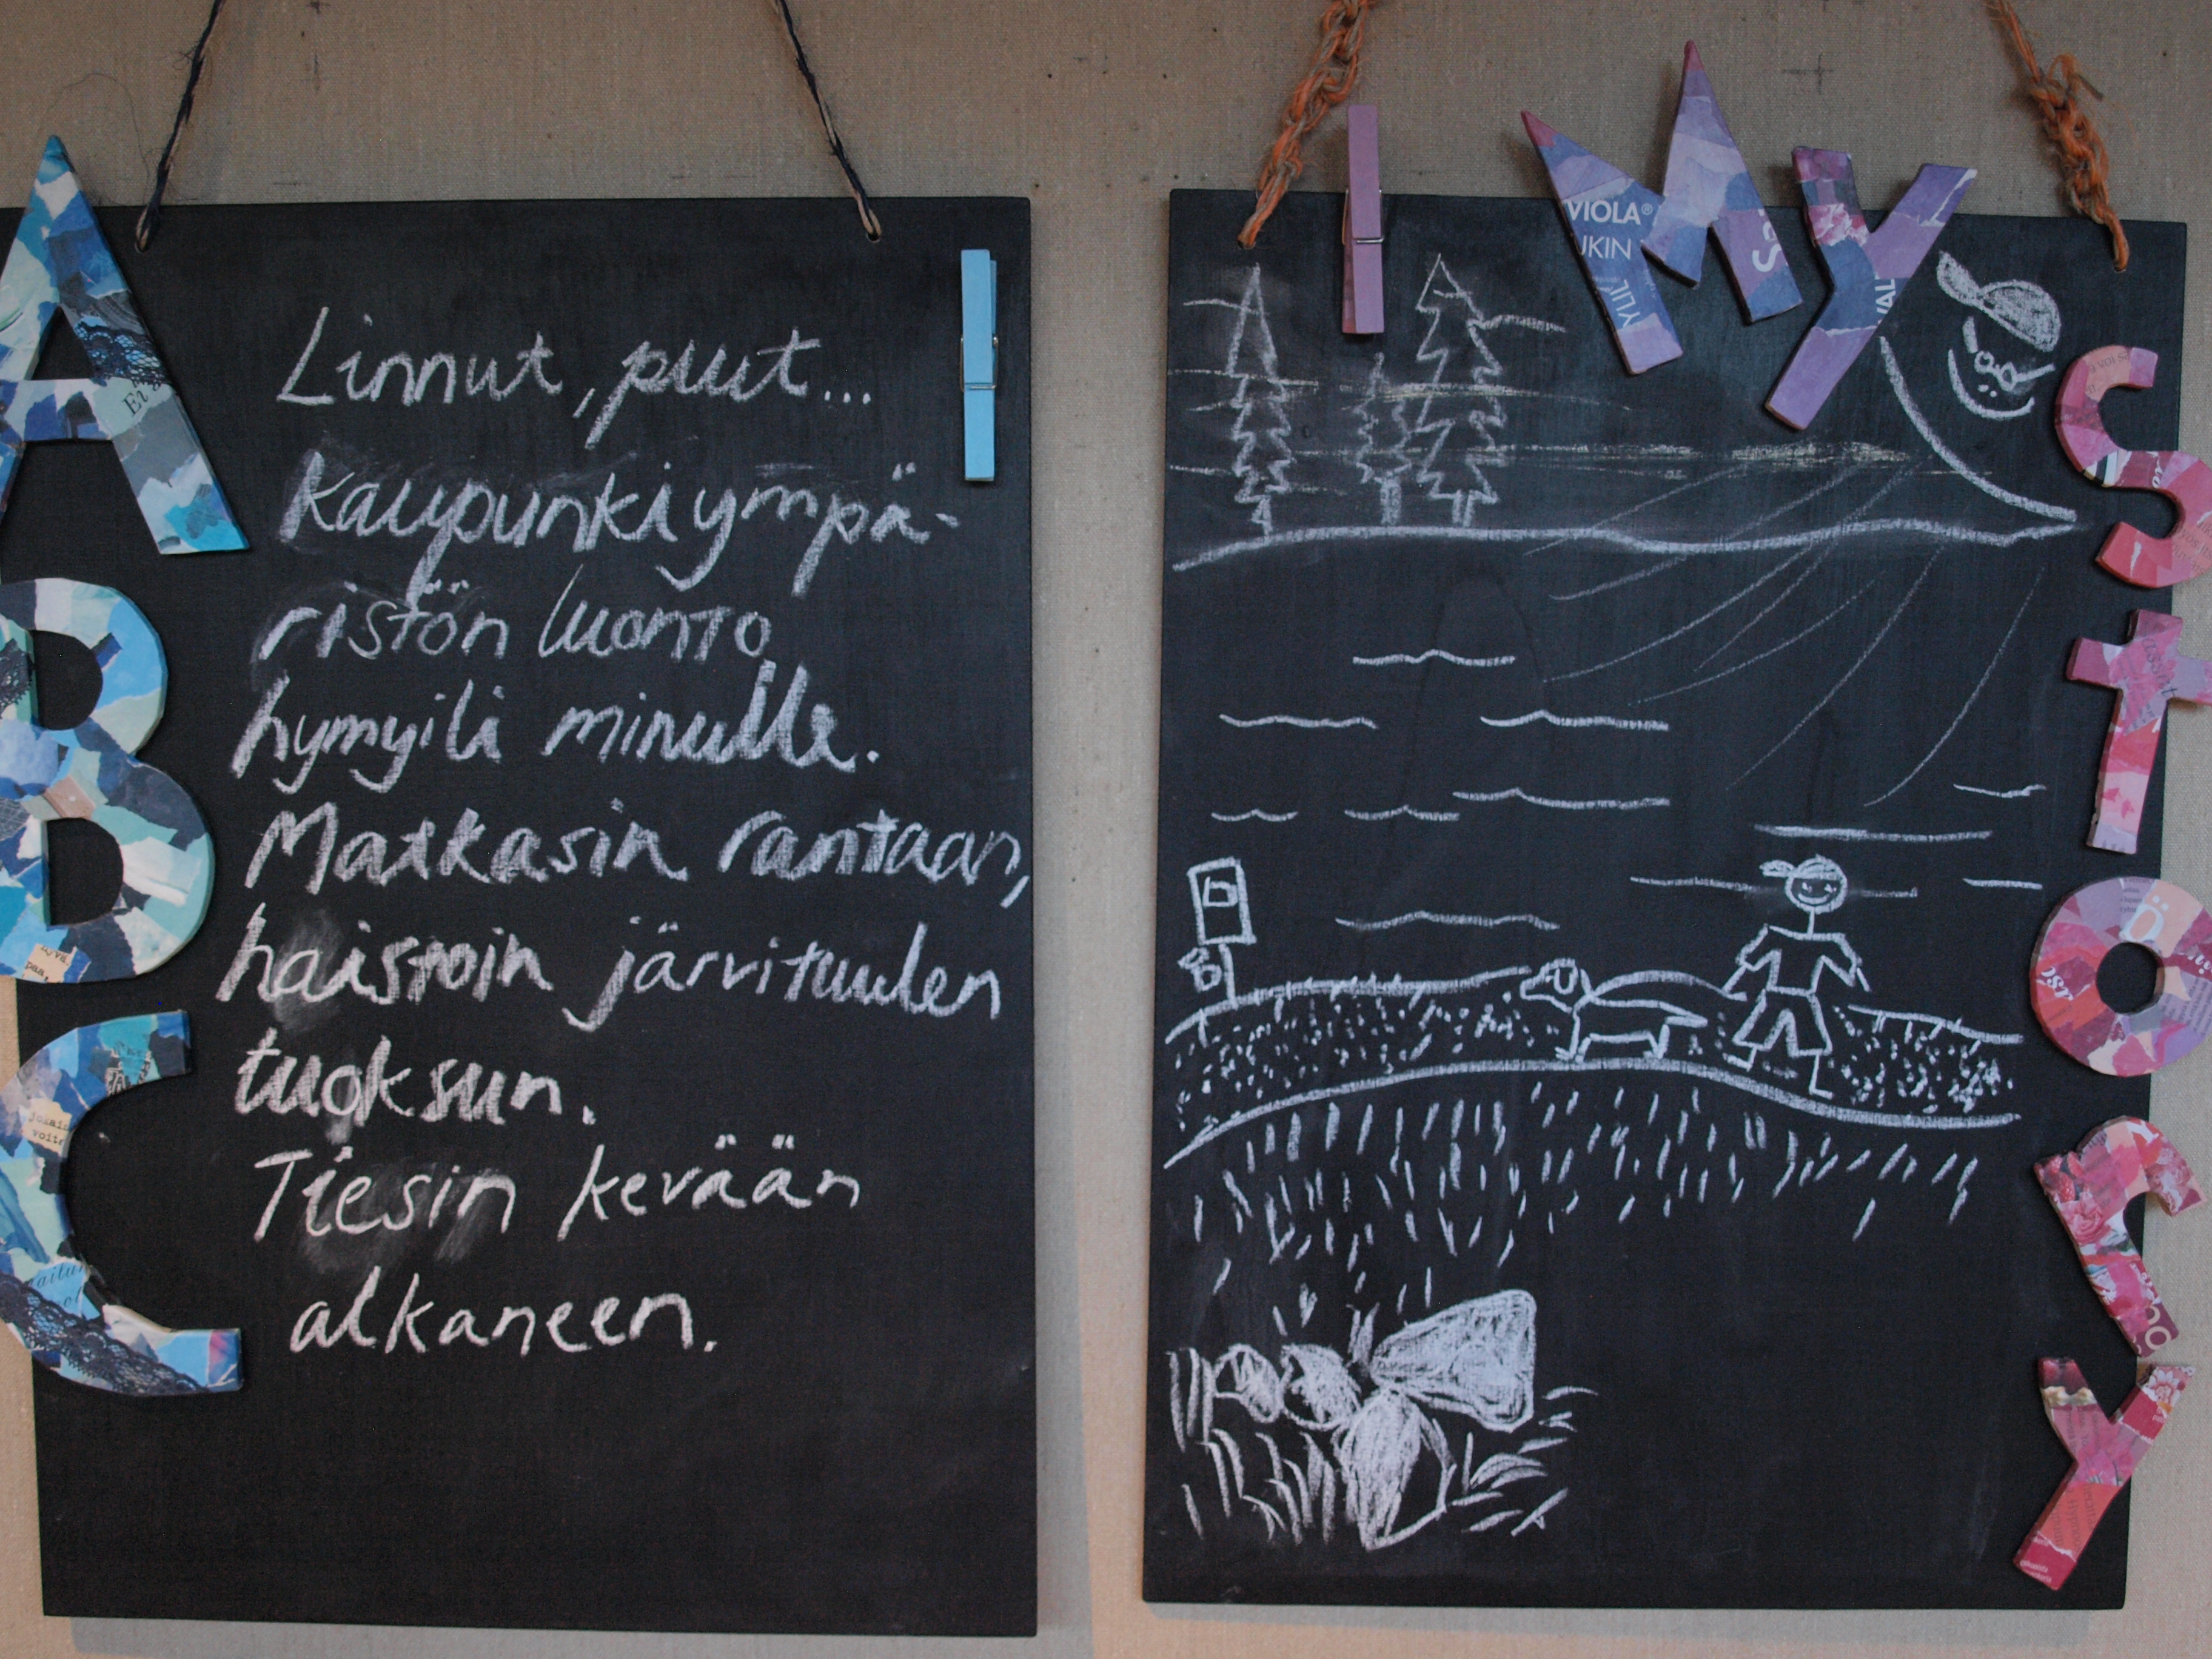 A
B
C
Linnut, puut...
kaupunkiympä-
ristön luonto
hymyili minulle.
Matkasin rantaan,
haistoin järvituulen
tuoksun.
Tiesin kevään
alkaneen.
MY
STORY
VIOLA®